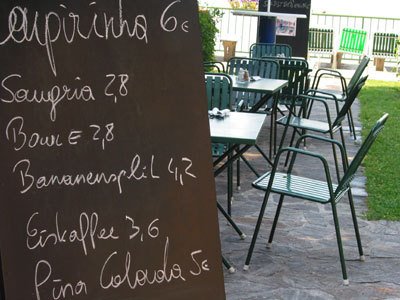 aipirinha 6€
Sangria 2,8
Bowle 2,8
Bananensplit 4,2
Eiskaffee 3,6
Pina Colada 5€